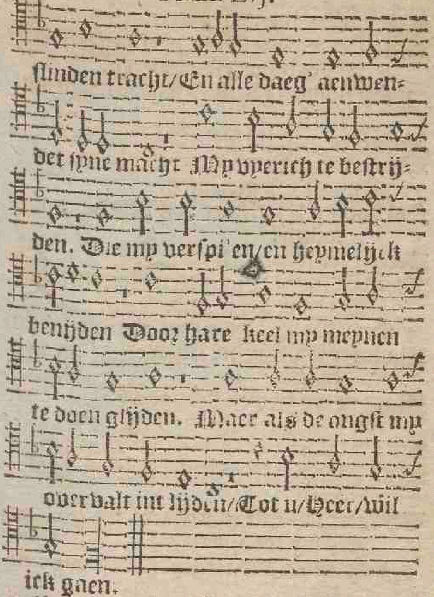 slinden tracht/ En alle daeg' aenwen-
det syne macht My vyerich te bestrij-
den. Die my verspi en/ en heymelijck
benijden Door hare keel my meynen
te doen glijden. Maer als de angst my
overvalt int lijden/ Tot u/ Heer/ wil
ick gaen.